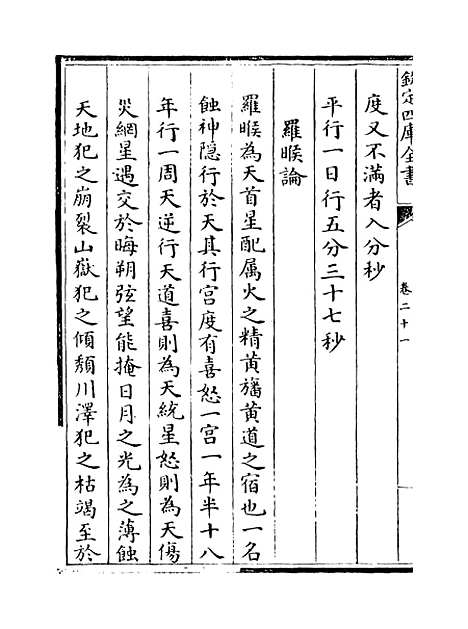 欽定四庫全書
卷二十一
度又不滿者入分秒
平行一日行五分三十七秒
羅㬋論
羅㬋為天首星配属火之精黄旛黄道之宿也一名
蝕神隐行於天其行宫度有喜怒一宫一年半十八
年行一周天逆行天道喜則為天統星怒則為天傷
災網星遇交於晦朔弦望能掩日月之光為之薄蝕
天地犯之崩裂山嶽犯之傾頽川澤犯之枯竭至於